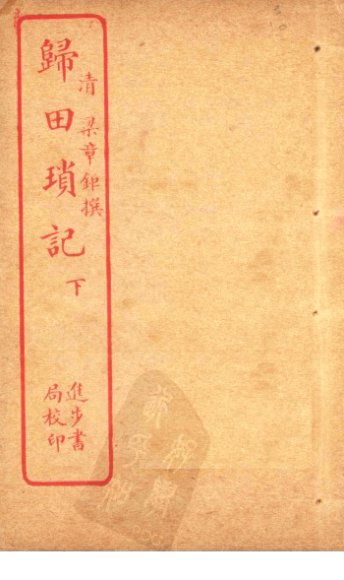 清 梁章鉅撰
歸田瑣記 下
進步書
局校印